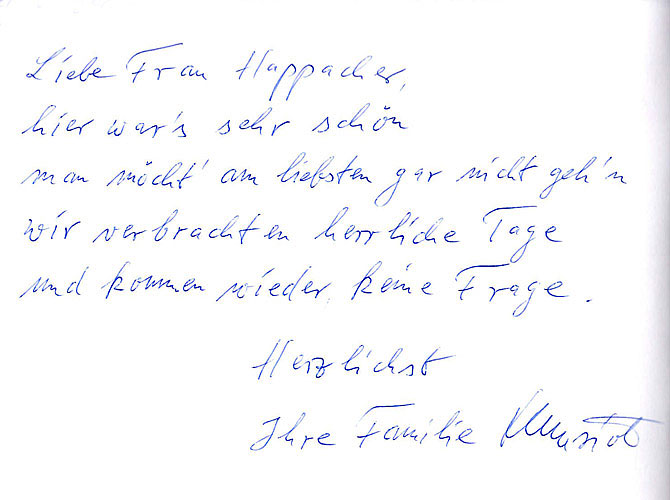 Liebe Frau Happacher,
hier war's sehr schön
man möcht' am liebsten gar nicht geh'n
wir verbrachten herrliche Tage
und kommen wieder, keine Frage.
Herzlichst
Ihre Familie